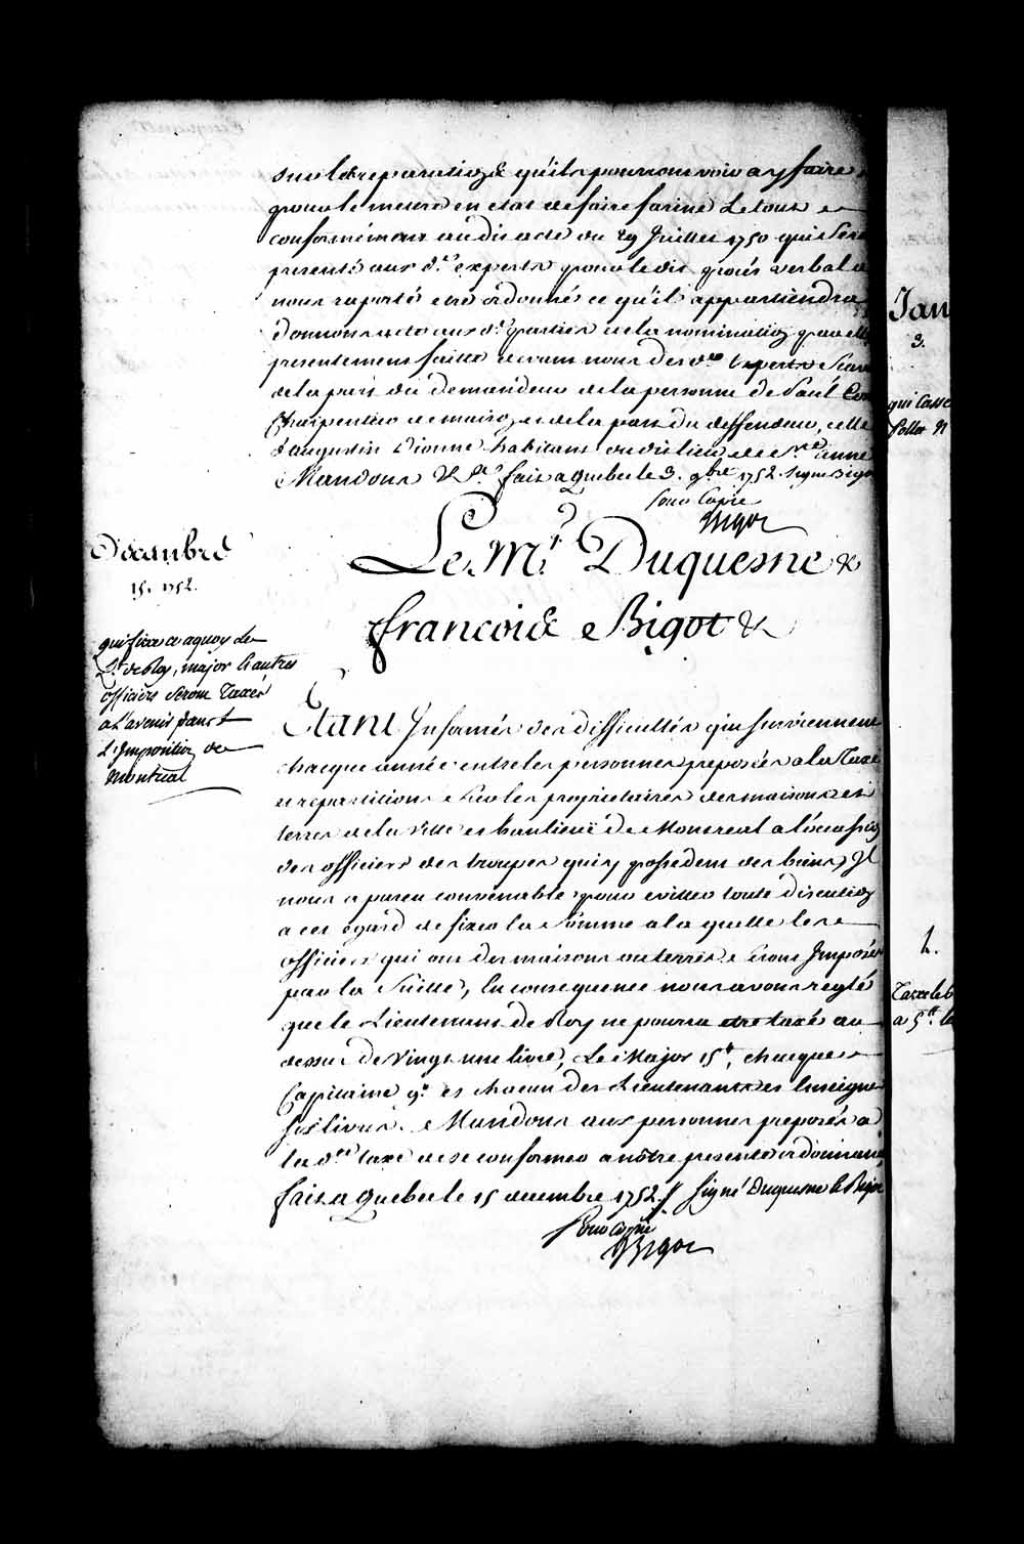 sur les reparations qu'ils pourront voir a y faire
pour le mettre en etat de faire farine Le tout
conformément audit acte du 29 Juillet 1750 qui sera
presenté aux d.ts experts pour le dit procés verbal a
nous raporté etre ordonné ce qu'il appartiendra
donnons acte aux d. parties de la nomination par elles
presentement faitte devant nous des d. Experts
de la part du demandeur de la personne de Paul
Charpentier de maison, et de la part du deffendeur, celle
d'augustin Dionne habitant du lieu de S.te anne
Mandons &c.a fait a Quebec le 3. 9.bre 1752. signé Bigot
Pour Copie
Bigot
Decembre
15. 1752.
qui fixe a quoy Le
L.t de Roy, major & autres
officiers seront Taxés
a L'avenir dans
L'Imposition de
montreal
Le M.is Duquesne &
françois Bigot &
Etant Informés des difficultés qui surviennent
chaque année entre les personnes preposées a la Taxe
et repartitions et les proprietaires des maisons et
terres de la Ville et banlieuë de Montreal a l'occasion
des officiers des troupes qui y possedent des biens, Il
nous a paru convenable pour eviter toute discution
a cet égard de fixer la somme a la quelle les
officiers qui ont des maisons ou terres seront Imposés
par la suitte, En consequence nous avons reglé
que le Lieutenant de Roy ne pourra etre taxé au
dessus de Vingt une livres, Le Major 15.tt, chaque
Capitaine 9.tt et chacun des Lieutenants et Enseignes
six livres. Mandons aux personnes preposées a
la d.te taxe de se conformer a nôtre presente ordonnance
fait a Quebec le 15 decembre 1752 ./. signé Duquesne & Bigot
Pour Copie
Bigot
Jan
3.
qui Casse
1.
Taxe le b
a 5.tt le